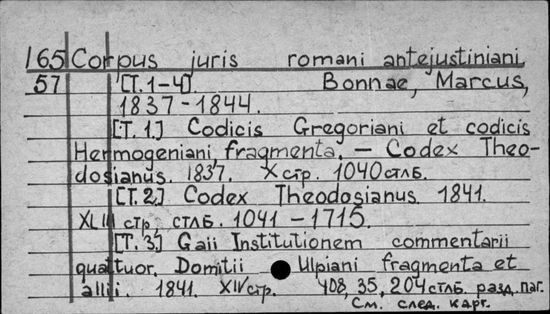 165 Corpus juris romani antejustiniani
57 [T. 1-4]. Bonnae, Marcus,
1837-1844.
[T. 1.] Codicis Gregoriani et codicis
Hermogeniani fragmenta. — Codex Theo-
dosianus. 1837. X стр. 1040 стлб.
[T. 2.] Codex Theodosianus. 1841.
XLIII стр., стлб. 1041-1715.
[T. 3.] Gaii Institutionem commentarii
quattuor. Domitii Ulpiani fragmenta et
allii. 1841. XIV стр. 408, 35, 204 стлб. разд. паг.
См. след. карт.